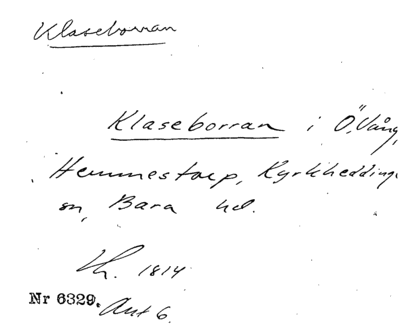 Klaseborran
Klaseborran i Ö. Vång,
Hemmestorp, Kyrkhedding
sn, Bara hd.
Lh. 1814
Nr 6329. Akt 6.